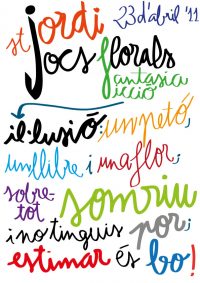 st jordi 23 d'abril '11
jocs florals
fantàsia
icció
il·lusió: un petó,
un llibre i una flor;
sobre-
tot somriu
i no tinguis por;
estimar és bo!